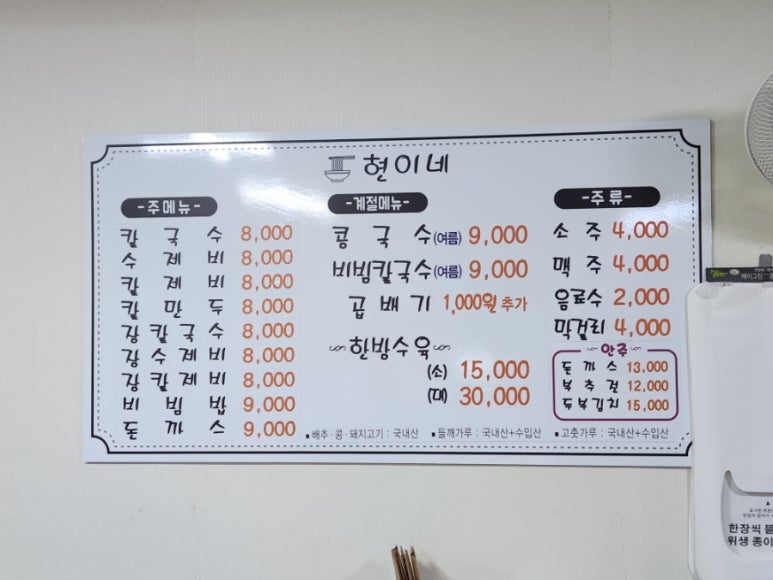 현이네
-주메뉴-
칼국수 8,000
수제비 8,000
칼제비 8,000
칼만두 8,000
장칼국수 8,000
장수제비 8,000
장칼제비 8,000
비빔밥 9,000
돈까스 9,000
-계절메뉴-
콩국수(여름) 9,000
비빔칼국수(여름) 9,000
곱배기 1,000원 추가
한방수육
(소) 15,000
(대) 30,000
-주류-
소주 4,000
맥주 4,000
음료수 2,000
막걸리 4,000
안주
돈까스 13,000
부추전 12,000
두부김치 15,000
■배추·콩·돼지고기 : 국내산 ■들깨가루 : 국내산+수입산 ■고춧가루 : 국내산+수입산
한장씩 뜯
위생 종이